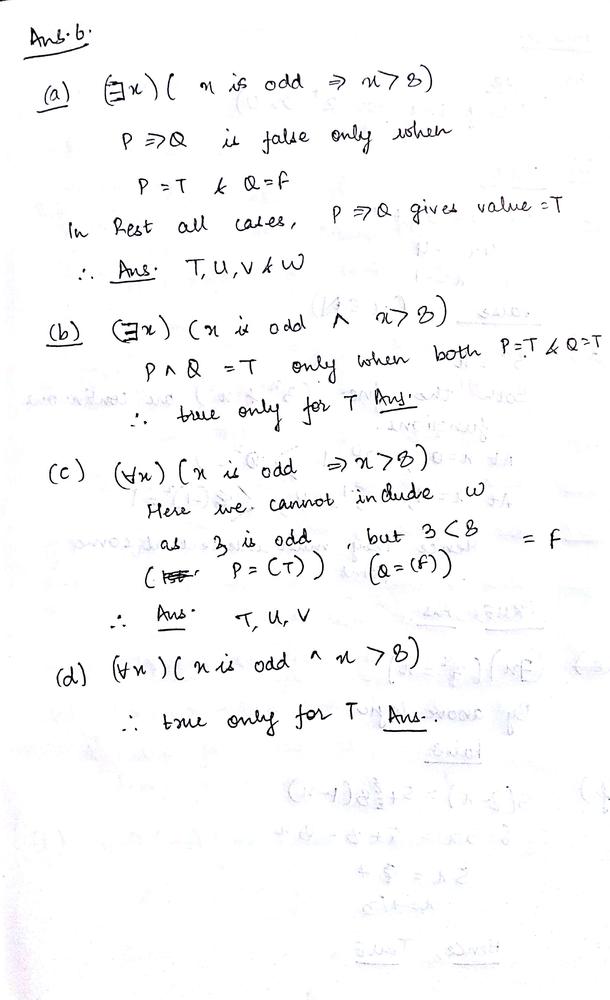 Ans. 6.
(a) (∃x) ( x is odd ⇒ x > 8)
P ⇒ Q is false only when
P = T & Q = F
In Rest all cases, P ⇒ Q gives value = T
∴ Ans. T, U, V & W
(b) (∃x) (x is odd ∧ x > 8)
P ∧ Q = T only when both P = T & Q = T
∴ true only for T Ans.
(c) (∀x) (x is odd ⇒ x > 8)
Here we cannot include W
as 3 is odd , but 3 < 8 = F
( P = (T) ) (Q = (F))
∴ Ans. T, U, V
(d) (∀x) ( x is odd ∧ x > 8)
∴ true only for T Ans.